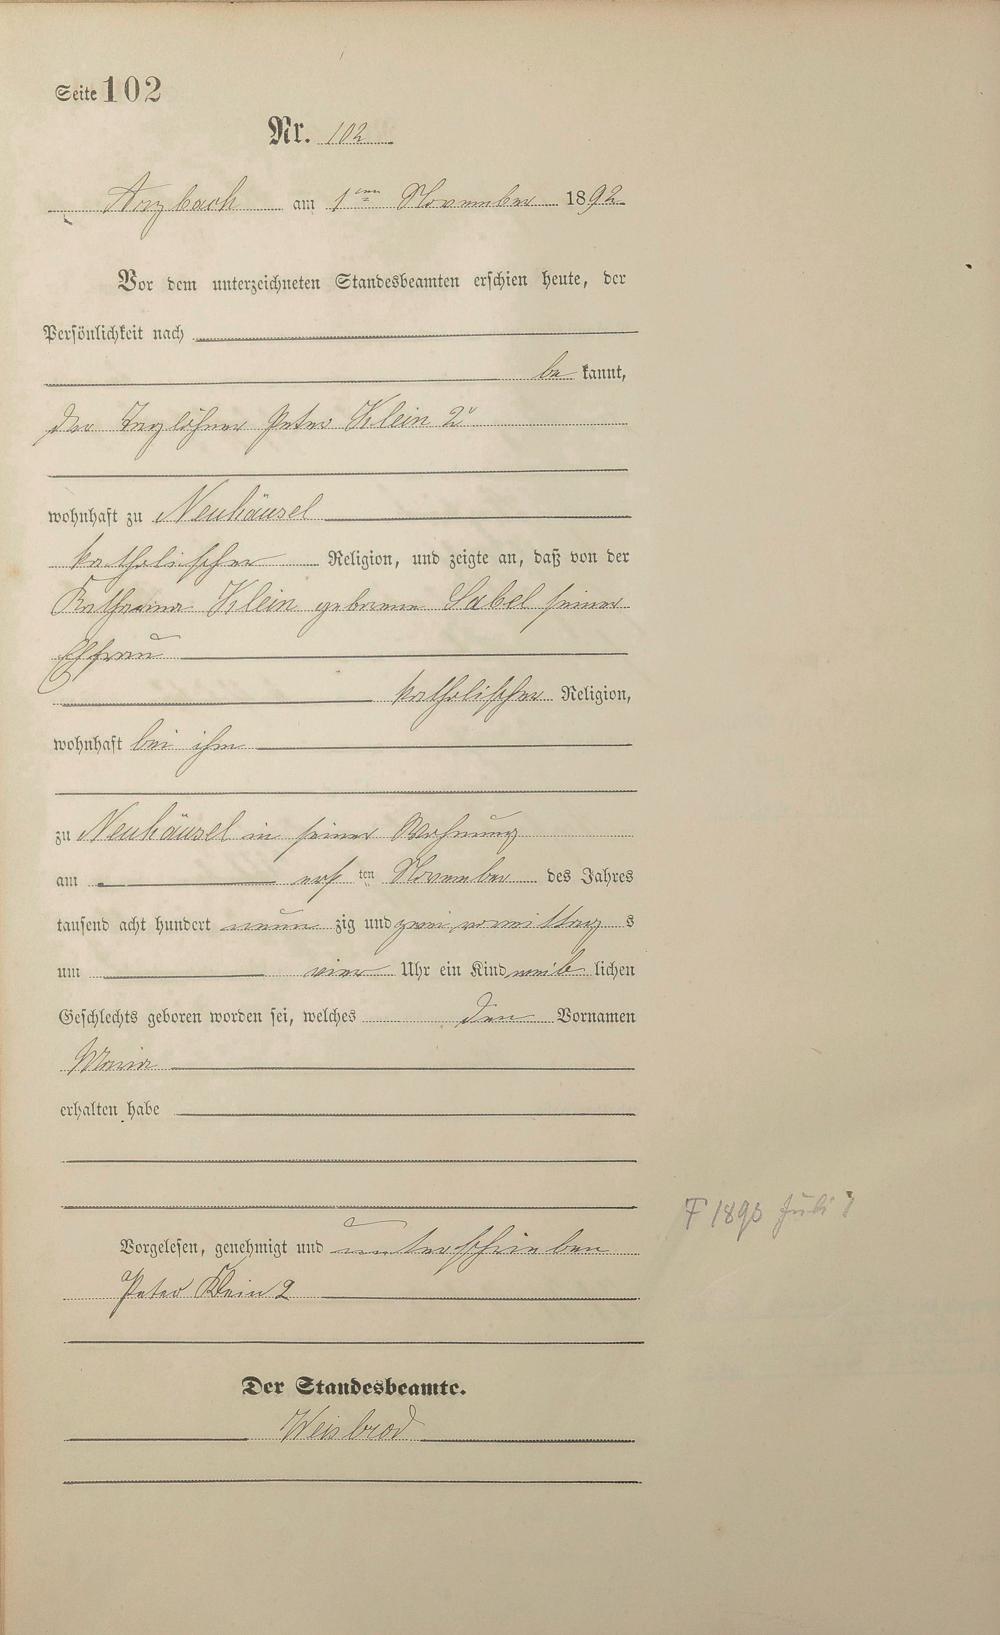 Seite 102
Nr. 102
Arzbach am 1ten November 1892
Vor dem unterzeichneten Standesbeamten erschien heute, der
Persönlichkeit nach
be kannt,
der Taglöhner Peter Klein 2r
wohnhaft zu Neuhäusel
katholischer Religion, und zeigte an, daß von der
Katharina Klein geborene Sabel seiner
Ehefrau
katholischer Religion,
wohnhaft bei ihm
zu Neuhäusel in seiner Wohnung
am ersten November des Jahres
tausend acht hundert neun zig und zwei vormittag s
um vier Uhr ein Kind weib lichen
Geschlechts geboren worden sei, welches den Vornamen
Maria
erhalten habe
Vorgelesen, genehmigt und unterschrieben
Peter Klein 2
Der Standesbeamte.
Weisbrod
† 1893 Juli